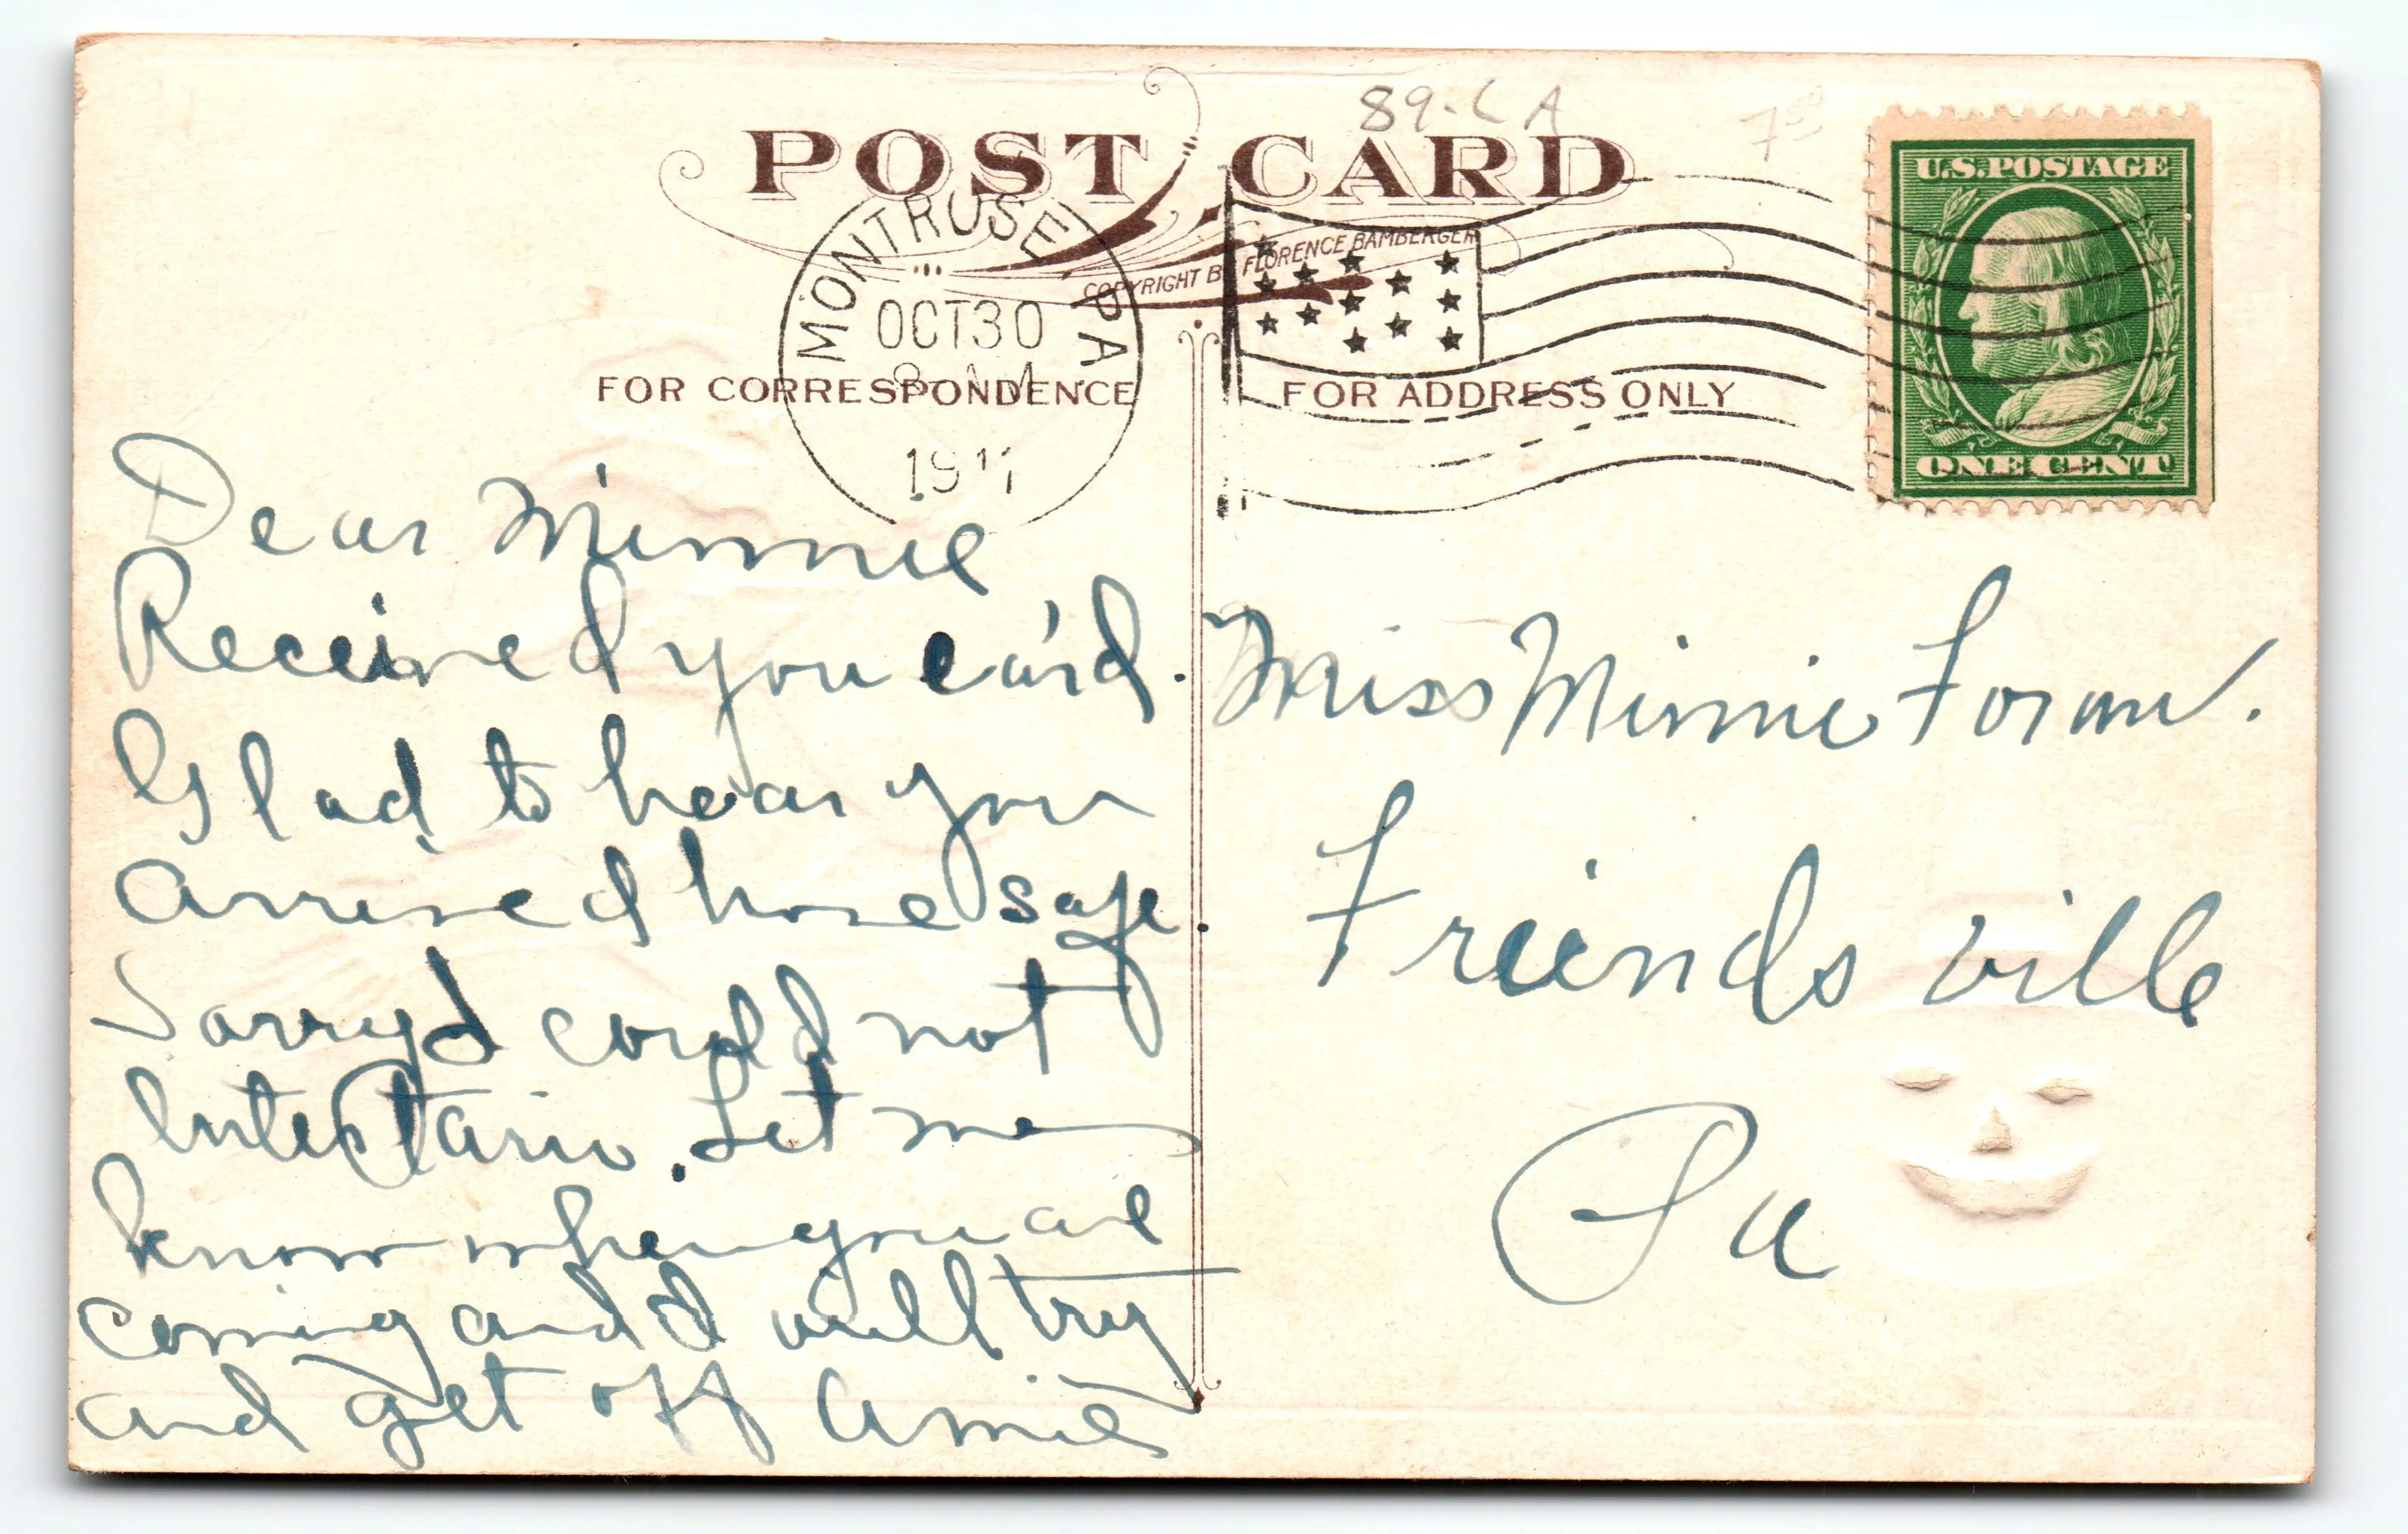 89-C A
POST CARD
COPYRIGHT BY FLORENCE BAMBERGER
MONTROSE, PA.
OCT 30
1911
FOR CORRESPONDENCE
FOR ADDRESS ONLY
U.S. POSTAGE
ONE CENT
Dear Minnie
Received you card.
Glad to hear you
arrived home safe.
Sorry I could not
entertain. Let me
know when you are
coming and I will try
and get off
Miss Minnie
Friendsville
Pa